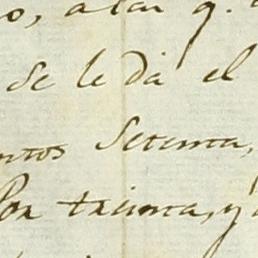 o, a la q.
se le dá el
ntos Setenta,
Por treinta, y